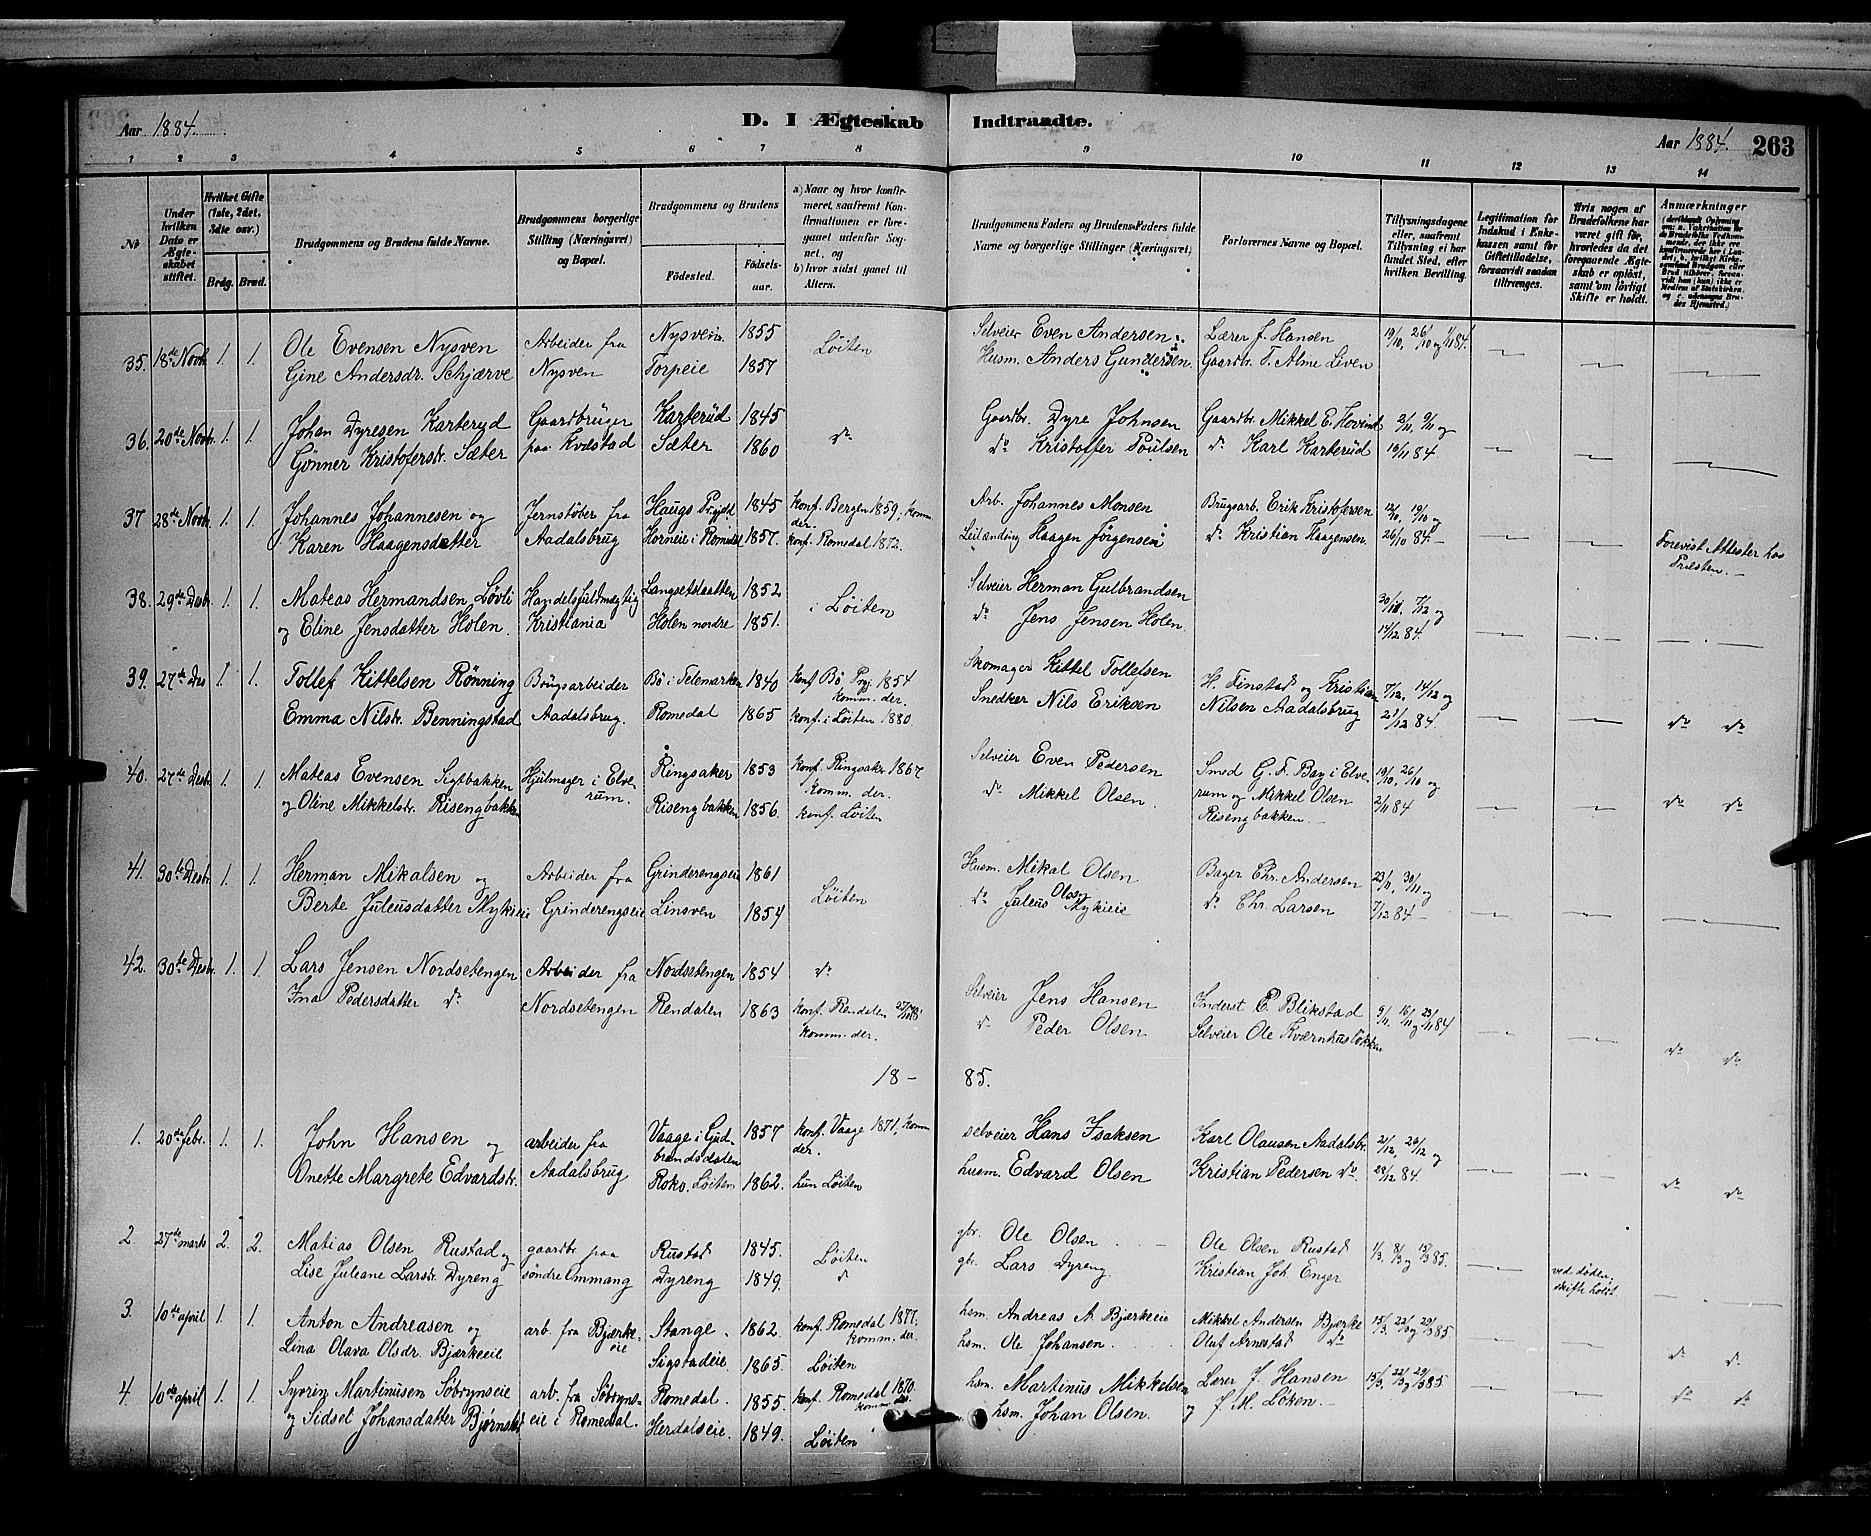 Aar 1884.
D. I Ægteskab Indtraadte.
Aar 1884. 263
1 2 3 4 5 6 7 8 9 10 11 12 13 14
No
Under hvilken Dato er Ægteskabet stiftet.
Hvilket Gifte (1ste, 2det, 3die osv.)
Brdg. Brud.
Brudgommens og Brudens fulde Navne.
Brudgommens borgerlige Stilling (Næringsvei) og Bopæl.
Brudgommens og Brudens
Födested. Födselsaar.
a) Naar og hvor konfirmeret, saafremt Konfirmationen er foregaaet udenfor Sognet, og
b) hvor sidst gaaet til Alters.
Brudgommens Faders og Brudens Faders fulde Navne og borgerlige Stillinger (Næringsvei).
Forlovernes Navne og Bopæl.
Tillysningsdagene eller, saafremt Tillysning ei har fundet Sted, efter hvilken Bevilling.
Legitimation for Indskud i Enkekassen samt for Giftetilladelse, forsaavidt saadan tiltrænges.
Hvis nogen af Brudefolkene har været gift før, hvorledes da det foregaaende Ægteskab er opløst, samt om lovligt Skifte er holdt.
Anmærkninger
35. 18de Novb. 1. 1. Ole Evensen Nysven Arbeider fra Nysvein 1855 Löiten Selveier Even Andersen Lærer J. Hansen 19/10, 26/10 og 1/11 84.
Gine Andersdr. Schjærve Nysven Torpeie 1857 Husm. Anders Gundersen. Gaardbr. T. Alme Liven
36. 20de Novbr. 1. 1. Johan Dyresen Karterud Gaardbruger Karterüd 1845 do Gaardbr. Dyre Johnsen Gaardbr. Mikkel E. Hovind 2/11, 9/11 og
Gönner Kristoferstr. Sæter paa Kvæstad Sæter 1860 do Kristoffer Poülsen do Karl Karterüd 16/11 84.
37 28de Novb. 1. 1. Johannes Johannesen og Jernstöber fra Haugs Prgjld. 1845 konf. Bergen 1859, komm. der. Arb. Johannes Monsen Brugsarb. Erik Kristofersen 12/10, 19/10 og
Karen Haagensdatter Aadalsbrug Horneie i Romedal 1857. konf. Romedal 1872. Leilænding Haagen Jörgensen do Kristian Haagensen. 26/10 84. Forevist Attester hos Præsten.
38. 29de Desb. 1. 1. Mateas Hermandsen Lövli Handelsfuldmægtig Langsetslaatten 1852 i Löiten Selveier Herman Gulbrandsen 30/11, 7/12 og
og Eline Jensdatter Holen. Kristiania Holen nordre 1851. do Jens Jensen Holen. 14/12 84.
39. 27de Des 1. 1. Tollef Kittelsen Rönning Brügsarbeider Bö i Telemarken 1840 konf Bö Prgj. 1854 komm. der. Skomager Kittel Tollefsen H. Finstad og Kristian 7/12, 14/12 og
Emma Nilstr. Benningstad Aadalsbrug. Romedal 1865 konf. i Löiten 1880 Snedker Nils Eriksen Nilsen Aadalsbrug 21/12 84. do do
40. 27de Desb. 1. 1. Mateas Evensen Sigtbakken Hjulmager i Elverum. Ringsaker 1853 konf. Ringsaker 1867 komm. der. Selveier Even Pedersen Smed G. F. Bay i Elve- 19/10, 26/10 og
og Oline Mikkelstr. Risengbakken Risengbakken 1856. konf. Löiten do Mikkel Olsen. rum og Mikkel Olsen Risengbakken. 2/11 84 do do
41. 30te Desbr. 1. 1. Herman Mikalsen og Arbeider fra Grinderengseie 1861 Löiten Husm. Mikal Olsen Bager Chr. Andersen 23/11, 30/11 og
Berte Juleusdatter Mykieie Grinderengseie Linsven 1854 do Juleus Olsen Mykieie do Chr. Larsen 7/12 84.
42. 30te Desbr. 1. 1. Lars Jensen Nordsetengen Arbeider fra Nordsetengen 1854 do Selveier Jens Hansen Inderst E. Blikstad 9/11, 16/11 og 23/11 84
Ina Pedersdatter do Nordsetengen Rendalen 1863 konf. Rendalen komm. der. do Peder Olsen Selveier Ole Kværnhusløkken do do
18-85.
1. 20de febr. 1. 1. John Hansen og arbeider fra Vaage i Gudbrandsdalen 1857 konf. Vaage 1871, komm der. selveier Hans Isaksen Karl Olausen Aadalsbr. 21/12, 26/12 og
Onette Margrete Edvardstr. Aadalsbrug Roko. Löiten 1862. hun Löiten husm. Edvard Olsen Kristian Pedersen do 28/12 84. do do
2. 27de marts 2. 2. Matias Olsen Rustad og gaardbr. paa Rustad 1845. Löiten gbr. Ole Olsen Ole Olsen Rustad 1/3, 8/3 og 15/3 85.
Lise Juleane Larstr. Dyreng söndre Ommang Dyreng 1849. do gbr. Lars Dyreng. Kristian Joh. Enger ved døden, skifte holdt
3. 10de april 1. 1. Anton Andreasen og arb. fra Bjærkeeie Stange. 1862. konf. Romedal 1877. komm. der. hsm. Andreas A. Bjærkeeie Mikkel Andersen Bjærke 15/3, 22/3 og 29/3 85
Lina Olava Olsdr. Bjærkeeie Sigstadeie. 1865. Löiten hsm. Ole Johansen. Oluf Arnestad do do do
4. 10de april 1. 1. Syvrin Martinusen Söbrynseie arb. fra Söbryns- Romedal. 1855. konf. Romedal 1870. komm. der. hsm. Martinus Mikkelsen Lærer J. Hansen 15/3, 22/3 og 29/3 85
og Sidset Johansdatter Bjørnstad eie i Romedal. Herdalseie. 1849. Löiten hsm. Johan Olsen. og J. M. Löken. do do